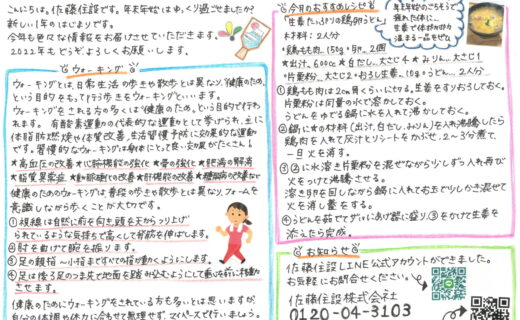 こんにちは。佐藤住設です。年末年始はゆっくり過ごせましたか?
新しい1年のはじまりです。
今年も色々な情報をお届けさせていただきます。
2022年もどうぞよろしくお願いします。
ウォーキング
ウォーキングとは、日常生活の歩きや散歩とは異なり、「健康のため」
という目的をもって行う歩きをウォーキングといいます。
ウォーキングをされる方の多くは「健康のため」という目的で行わ
れます。有酸素運動の代表的な運動として挙げられ、主に
体脂肪燃焼や体質改善、生活習慣予防に効果的な運動
です。習慣的なウォーキングは身体にとって良い効果がたくさん!
★高血圧の改善★心肺機能の強化★骨の強化★肥満の解消
★脂質異常症★動脈硬化の改善★肝機能の改善★糖尿病の改善など
健康のためのウォーキングは普段の歩きや散歩とは異なり、フォームを
意識しながら歩くことが大切です。
①視線は自然に前を向き頭を天からつり上げ
られているような気持ちで高くして背筋を伸ばします。
②肘を曲げて腕を振ります。
③足の親指〜小指まですべての指が動くようにします。
④足は後る足のつま先で地面を踏み込むようにして
させます。
健康のためにウォーキングをされている方も多いとは思いますが、
自分の体調や体力に合わせて無理せず、マイペースで行いましょう。
今月のおすすめレシピ
「生姜たっぷりの鶏卵うどん」
材料:2人分
・鶏もも肉…150g・卵…2個
★出汁…600cc★白だし…大さじ4★みりん…大さじ1
・片栗粉…大さじ2・おろし生姜…10g・うどん…2人分
年末年始のごちそうで
疲れた体に…
生姜で体が芯から
温まる一品です
①鶏もも肉は2cm角くらいに切る。生姜をすりおろしておく。
片栗粉は同量の水で溶かしておく。
うどんをゆでる鍋に水を入れて沸かしておく。
②鍋に★の材料(出汁、白だし、みりん)を入れ沸騰したら
鶏肉を入れて灰汁とりシートをかぶせ、2〜3分煮て、
一旦火を消す。
③②に水溶き片栗粉を混ぜながら少しずつ入れ再び
火をつけて沸騰させる。
溶き卵を回しながら鍋に入れておたまで少しかき混ぜて
火を消し蓋をする。
④うどんを茹でてザルにあげ器に盛り、③をかけて生姜を
添えたら完成。
お知らせ
佐藤住設LINE公式アカウントができました。
お気軽にお問合せください。
佐藤住設株式会社
0120-04-3103